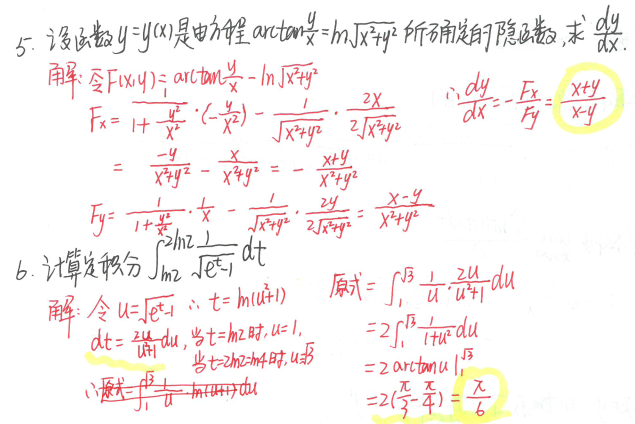 5. 设函数y=y(x)是由方程 arctan y/x = ln√(x²+y²) 所确定的隐函数,求 dy/dx.
解: 令F(x,y)= arctan y/x - ln√(x²+y²)
Fx = 1/(1+y²/x²) · (-y/x²) - 1/√(x²+y²) · 2x/(2√(x²+y²))
= -y/(x²+y²) - x/(x²+y²) = - (x+y)/(x²+y²)
Fy = 1/(1+y²/x²) · 1/x - 1/√(x²+y²) · 2y/(2√(x²+y²)) = (x-y)/(x²+y²)
∴ dy/dx = - Fx/Fy = (x+y)/(x-y)
6. 计算定积分 ∫_{ln2}^{2ln2} 1/√(e^t-1) dt
解: 令 u=√(e^t-1) ∴ t=ln(u²+1)
dt = 2u/(u²+1) du, 当t=ln2时, u=1,
当t=2ln2=ln4时, u=√3
∴原式=∫_1^{√3} 1/u · ln(u+1) du
原式 = ∫_1^{√3} 1/u · 2u/(u²+1) du
= 2∫_1^{√3} 1/(1+u²) du
= 2 arctan u |_1^{√3}
= 2(π/3 - π/4) = π/6